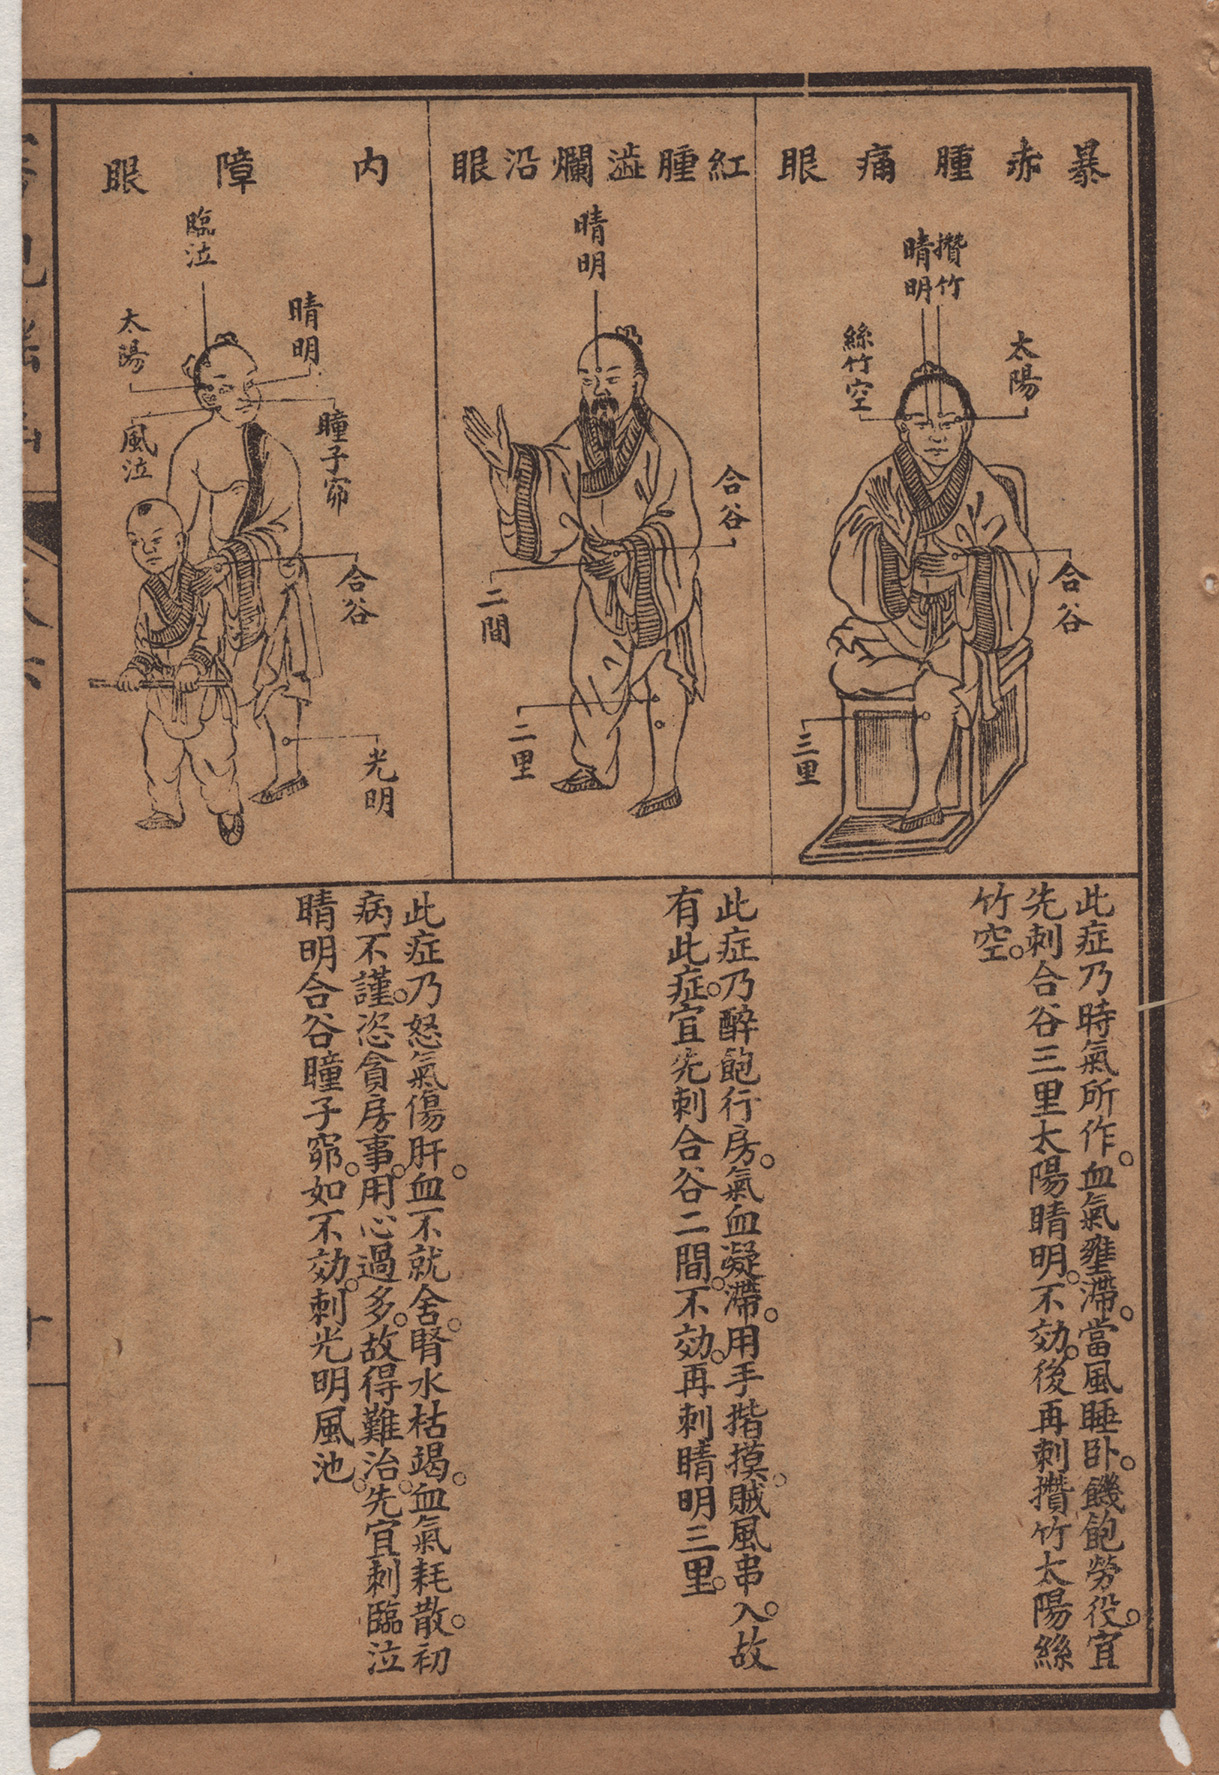 暴赤腫痛眼
攢竹
睛明
太陽
絲竹空
合谷
三里
此症乃時氣所作。血氣壅滯。當風睡卧。饑飽勞役。宜
先刺合谷三里太陽睛明。不効。後再刺攢竹太陽絲
竹空。
紅腫澁爛沿眼
睛明
合谷
二間
二里
此症乃醉飽行房。氣血凝滯。用手揩摸。賊風串入。故
有此症。宜先刺合谷二間。不効。再刺睛明三里。
内障眼
臨泣
睛明
太陽
瞳子窌
風泣
合谷
光明
此症乃怒氣傷肝。血不就舍。腎水枯竭。血氣耗散。初
病不謹。恣貪房事。用心過多。故得難治。先宜刺臨泣
睛明合谷瞳子窌。如不効。刺光明風池。